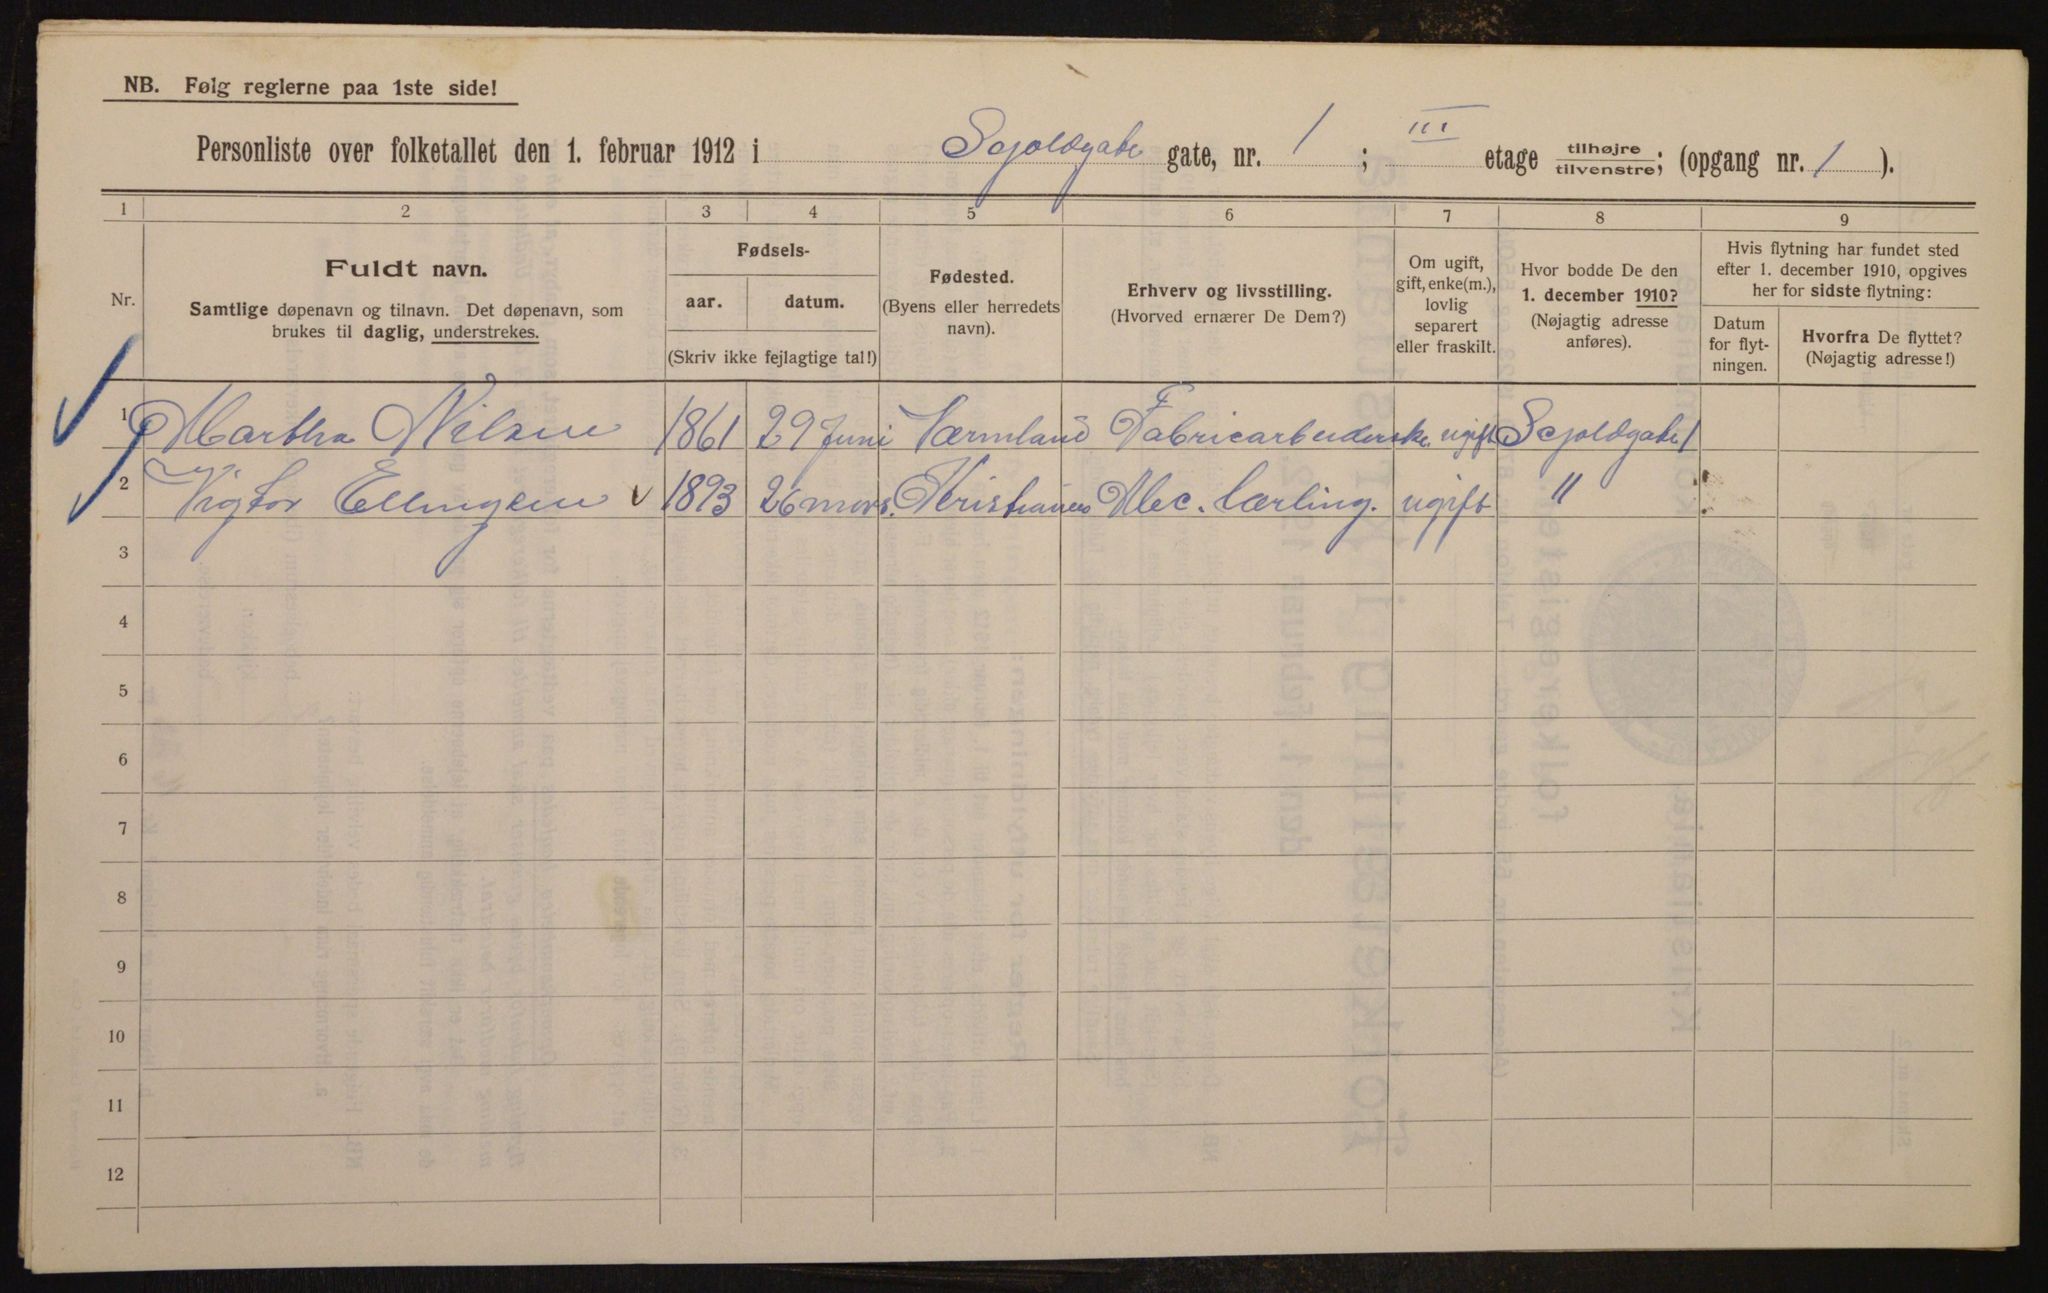 NB. Følg reglerne paa 1ste side!
Personliste over folketallet den 1. februar 1912 i Scjoldgade gate, nr. 1 ; III etage tilhøjre/tilvenstre; (opgang nr. 1 ).
1 2 3 4 5 6 7 8 9
Nr.
Fuldt navn.
Samtlige døpenavn og tilnavn. Det døpenavn, som
brukes til daglig, understrekes.
Fødsels-
aar. datum.
(Skriv ikke fejlagtige tal!)
Fødested.
(Byens eller herredets
navn).
Erhverv og livsstilling.
(Hvorved ernærer De Dem?)
Om ugift,
gift, enke(m.),
lovlig
separert
eller fraskilt.
Hvor bodde De den
1. december 1910?
(Nøjagtig adresse
anføres).
Hvis flytning har fundet sted
efter 1. december 1910, opgives
her for sidste flytning:
Datum
for flyt-
ningen.
Hvorfra De flyttet?
(Nøjagtig adresse!)
1 Martha Nilsen 1861 29 Juni Værmland Fabricarbeiderske ugift Scjoldgade 1
2 Vigtor Ellingsen 1893 26 mars. Kristiania Mec. Lærling. ugift "
3
4
5
6
7
8
9
10
11
12